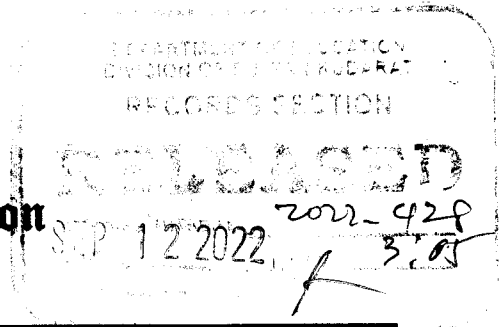 DEPARTMENT OF EDUCATION
DIVISION OF SULTAN KUDARAT
RECORDS SECTION
RELEASED
on SEP 12 2022 2022-428
3:05